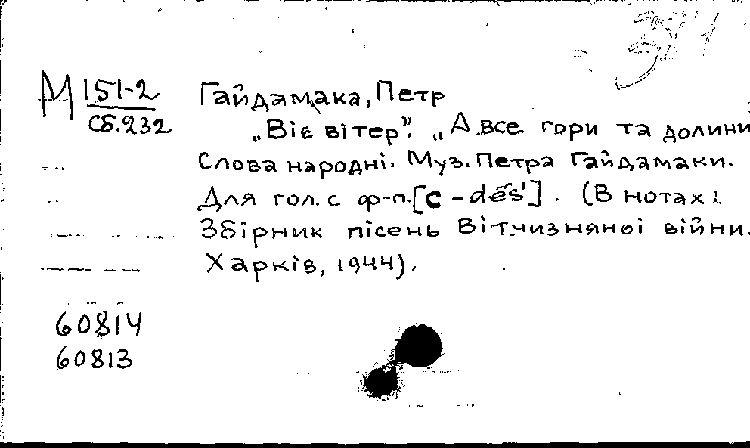 М 151-2
сб.232
Гайдамака, Петр
„Віє вітер". „А все гори та долини
Слова народні. Муз. Петра Гайдамаки.
Для гол. с ф-п. [c - des']. (В нотах:
Збірник пісень Вітчизняної війни.
Харків, 1944).
60814
60813